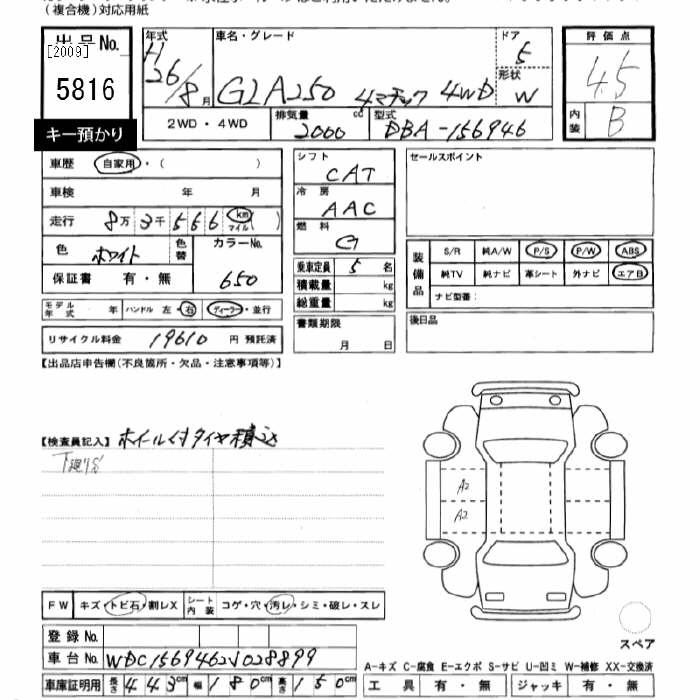 (複合機)対応用紙
出品No.
[2009]
5816
キー預かり
年式 H26/8月
車名・グレード GLA250 4マチック 4WD
ドア 5
形状 W
2WD・4WD
排気量 2000 cc
型式 DBA-156946
評価点 4.5
内装 B
車歴 自家用・( )
車検 年 月
走行 8万3千556 km マイル( )
色 ホワイト
色替
カラーNo. 650
保証書 有・無
モデル年式 年
ハンドル 左・右
ディーラー・並行
リサイクル料金 19610 円 預託済
シフト CAT
冷房 AAC
燃料 G
乗車定員 5 名
積載量 kg
総重量 kg
書類期限
月 日
セールスポイント
装備品
S/R 純A/W P/S P/W ABS
純TV 純ナビ 革シート 外ナビ エアB
ナビ型番:
後日品
【出品店申告欄(不良箇所・欠品・注意事項等)】
【検査員記入】ホイール付タイヤ積込
A2
A2
FW キズ・トビ石・割レX
シート内装 コゲ・穴・汚レ・シミ・破レ・スレ
登録No.
車台No. WDC1569462J028899
車庫証明用 長さ 443cm 幅 180cm 高さ 150cm
スペア
A-キズ C-腐食 E-エクボ S-サビ U-凹ミ W-補修 XX-交換済
工具 有・無 ジャッキ 有・無